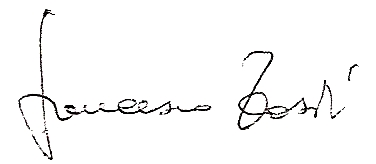 Francesco Tosti